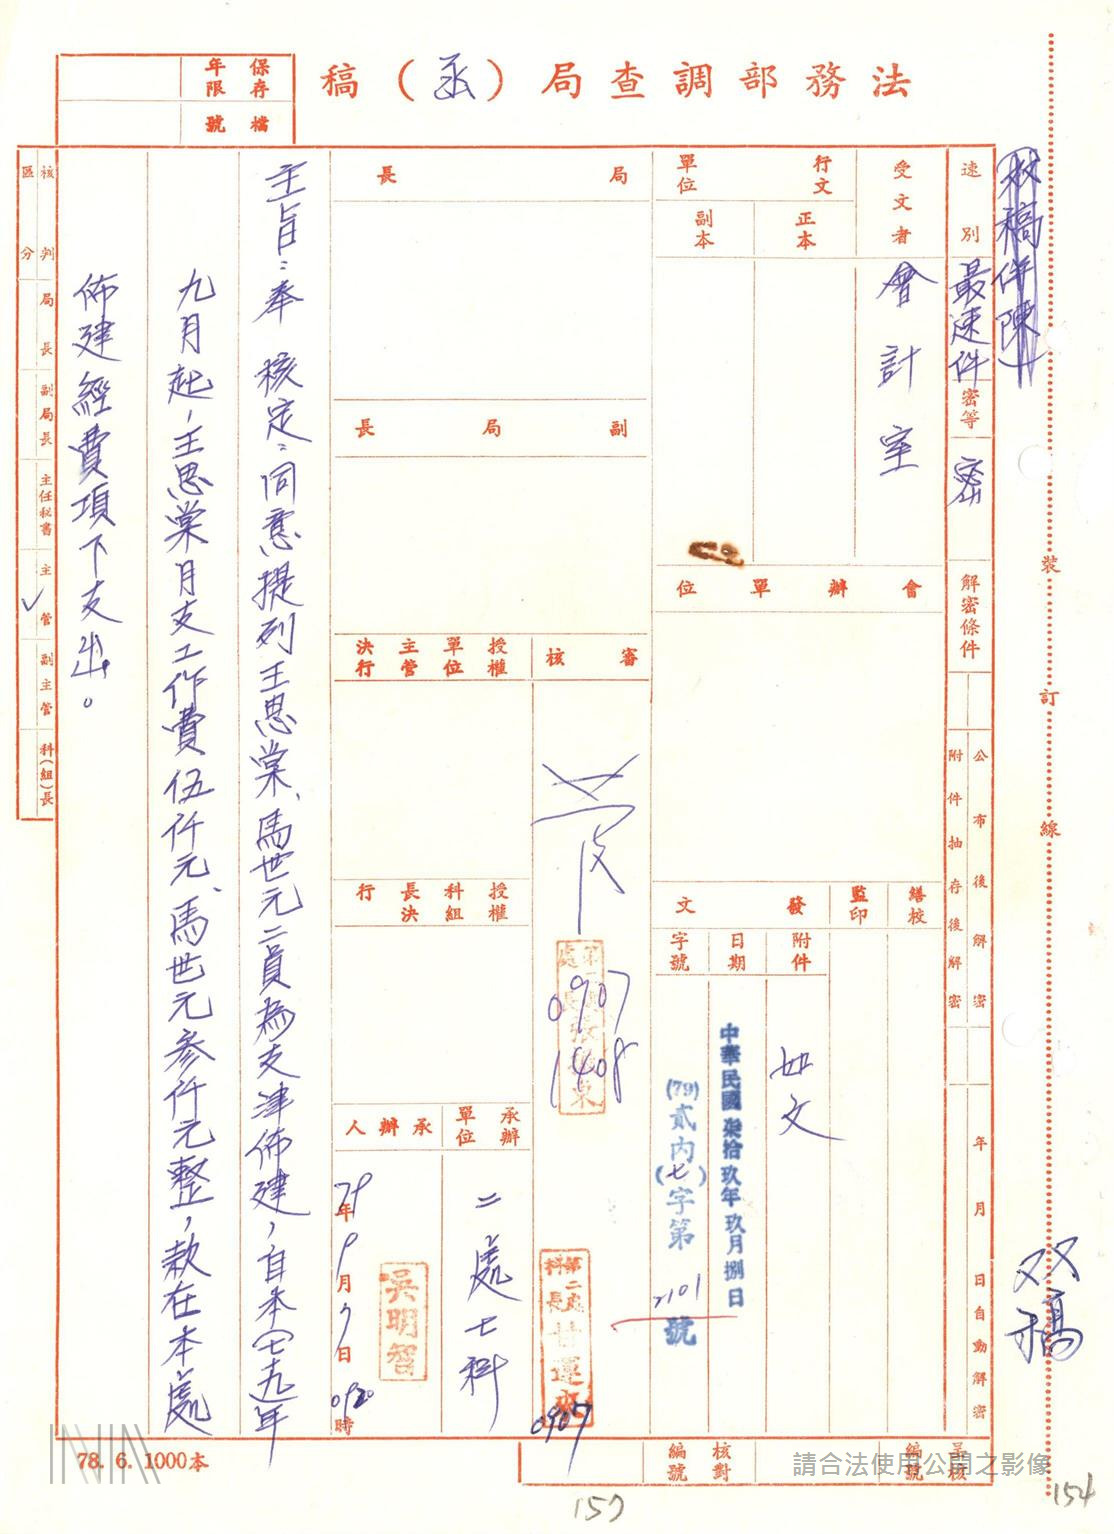 法務部調查局（函）稿
保存年限
檔號
双稿併陳
速別
最速件
密等
密
解密條件
公布後解密
附件抽存後解密
年月日自動解密
受文者
會計室
行文單位
正本
副本
會辦單位
繕校
監印
發文
附件
如文
日期
中華民國柒拾玖年玖月捌日
字號
(79)貳內(七)字第2101號
局長
副局長
審核
0907
1408
第二處科長甘運來
0907
授權單位主管決行
授權科組長決行
承辦單位
二處七科
承辦人
79年9月7日0920時
吳明智
主旨：奉 核定：同意提列王思棠、馬世元二員為支津佈建，自本(七十九)年
九月起，王思棠月支工作費伍仟元、馬世元參仟元整，款在本處
佈建經費項下支出。
核判區分
局長
副局長
主任秘書
主管
✓
副主管
科(組)長
裝
訂
線
双稿
78. 6. 1000本
核對編號
編號
請合法使用公開之影像
157
154